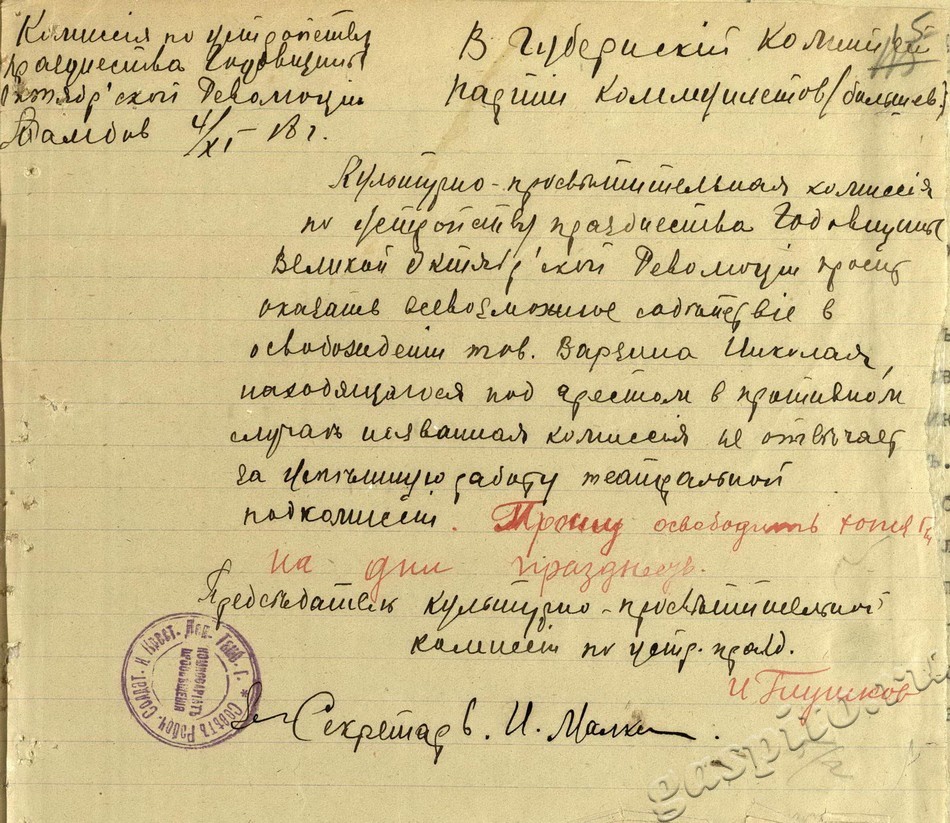 Комиссія по устройству
празднества Годовщины
Октябр'ской Революціи
Тамбов 4/XI 18 г.
В Губернскій Комитет
партіи Коммунистов (большев.)
115
Культурно-просвѣтительная комиссія
по устройству празднества Годовщины
Великой Октябр'ской Революціи просит
оказать всевозможное содѣйствіе в
освобожденіи тов. Варзина Николая,
находящагося под арестом в противном
случаѣ названная комиссія не отвѣчает
за успѣшную работу театральной
подкомиссіи. Прошу освободить хотя
на дни празднеств.
Предсѣдатель культурно-просвѣтительной
комиссіи по устр. празд.
И Глушков
Совѣтъ Рабоч. Солдат. и Крест. Деп. Тамб. Г.
КОМИССАРІАТЪ
ПРОСВѢЩЕНІЯ
Секретарь. И. Малкин.
gaspito.ru